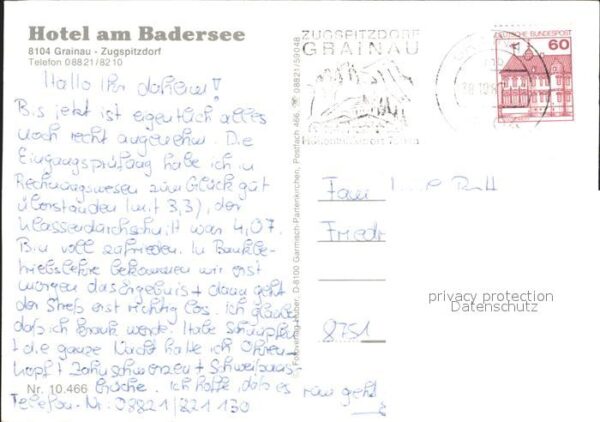 Hotel am Badersee
8104 Grainau - Zugspitzdorf
Telefon 08821/8210
Hallo Ihr daheim!
Bis jetzt ist eigentlich alles
noch recht angenehm. Die
Eingangsprüfung habe ich in
Rechnungswesen zum Glück gut
überstanden (mit 3,3), der
Klassendurchschnitt war 4,07.
Bin voll zufrieden. In Bankbe-
triebslehre bekommen wir erst
morgen das Ergebnis + dann geht
der Streß erst richtig los. Ich glaube
daß ich krank werde. Habe Schnupfen
+ die ganze Nacht hatte ich Ohren-
Kopf + Zahnschmerzen + Schweißaus-
brüche. Ich hoffe, daß es rum geht.
Nr. 10.466
Telefon-Nr. 08821/821 130
Huber, D-8100 Garmisch-Partenkirchen, Postfach 466, 08821/59048
ZUGSPITZDORF
GRAINAU
60
DEUTSCHE BUNDESPOST
Fam.
Friedr
8751
privacy protection
Datenschutz